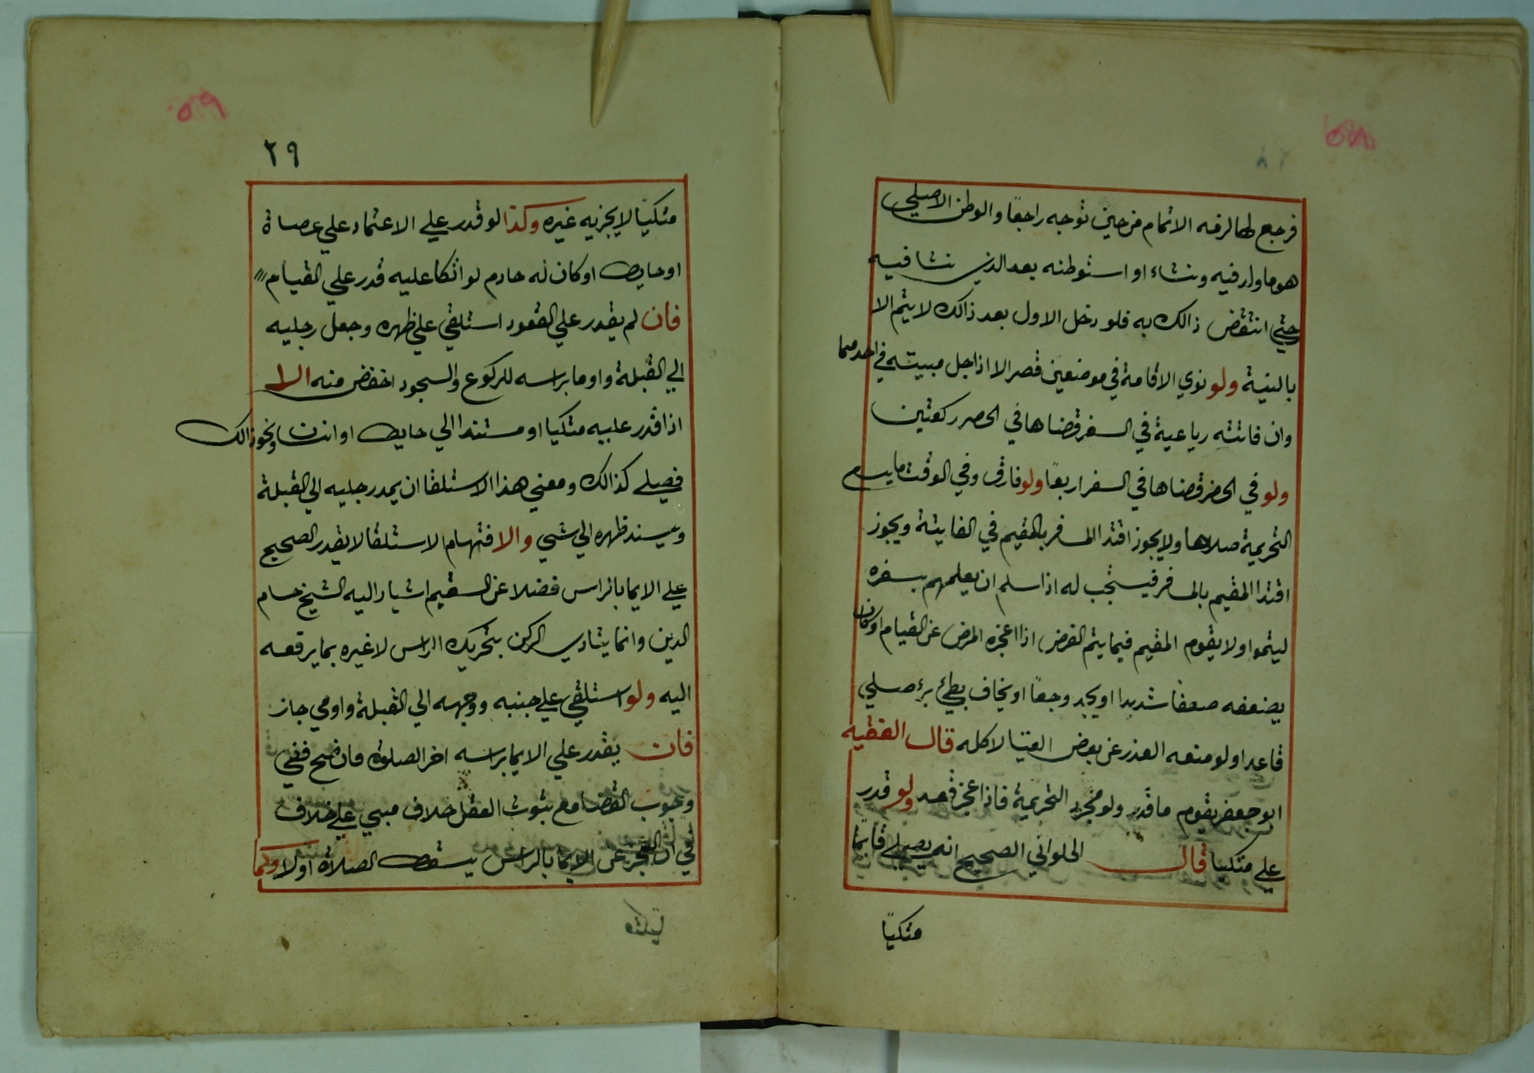 فرجع لها لزمه الاتمام من حين توجه راجعا والوطن الاصيلي
هو ما ولد فيه ونشاء او استوطنه بعد الذي نشا فيه
حتي انتقض ذالك به فلو دخل الاول بعد ذالك لا يتم الا
بالنية ولو نوي الاقامة في موضعين قصر الا اذا جل مبيته في احدهما
وان فاتته رباعية في السفر قضاها في الحصر ركعتين
ولو في الحضر قضاها في السفر اربعا ولو فارق وفي الوقت ما يسع
التحريمة صلاها ولا يجوز اقتدا المسافر بالمقيم في الفايتة ويجوز
اقتدا المقيم بالمسافر فيستحب له اذا سلم ان يعلمهم بسفره
ليتموا ولا يقوم المقيم فيما يتم الفرض اذا اعجزه المرض عن القيام او كان
يضعفه ضعفا شديدا او يجد وجعا او يخاف بطئ برء صلي
قاعدا ولو منعه العذر عن بعض القيام لا كله قال الفقيه
ابو جعفر يقوم ما قدر ولو مجرد التحريمة فاذا عجز قعد ولو قدر
علي متكيا قال الحلواني الصحيح انه يصلي قايما
متكيّا
٢٩
متكيّا لا يجزيه غيره وكذا لو قدر علي الاعتماد علي عصاة
او حايط او كان له خادم لو اتكا عليه قدر علي القيام
فان لم يقدر علي القعود استلقي علي ظهره وجعل رجليه
الي القبلة واوما براسه للركوع والسجود اخفض منه الا
اذا قدر عليه متكيا او مستندا الي حايط او انسان ونحو ذالك
فيصلي كذالك ومعني هذا الاستلقا ان يمد رجليه الي القبلة
ويسند ظهره الي شي والا فتمام الاستلقا لا يقدر الصحيح
علي الايما بالراس فضلا عن السقيم اشار اليه الشيخ حسام
الدين وانما يتادي الركن بتحريك الراس لا غيره بما يرفعه
اليه ولو استلقي علي جنبه ووجهه الي القبلة واومي جاز
فان يقدر علي الايما براسه اخر الصلوة فان صح ففي
وجوب القضا مع ثبوت العقل خلاف مبني علي خلاف
في ان العجز عن الايما بالراس يسقط الصلاة اولا وكما